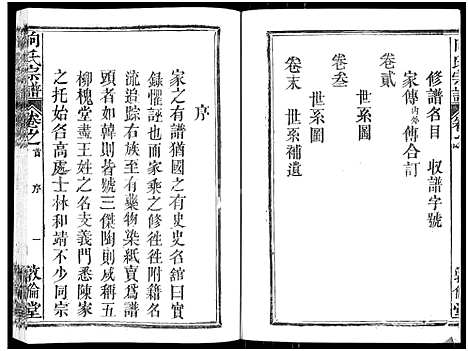 向氏宗譜
修譜名目　收譜字號
卷貳
家傳內外傳合訂
卷叁
世系圖
卷末　世系補遺
敦倫堂
序
家之有譜猶國之有史史名舘曰實
録懼誣也而家乘之修徃徃附籍名
流追踪右族至有藥物染紙賣爲譜
頭者如韓則皆號三傑陶則咸稱五
柳槐堂盡王姓之名支義門悉陳家
之托始咎高處士林和靖不少同宗
向氏宗譜
卷之首
序
一
敦倫堂